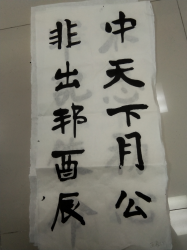 中天下月公
非出邦酉辰